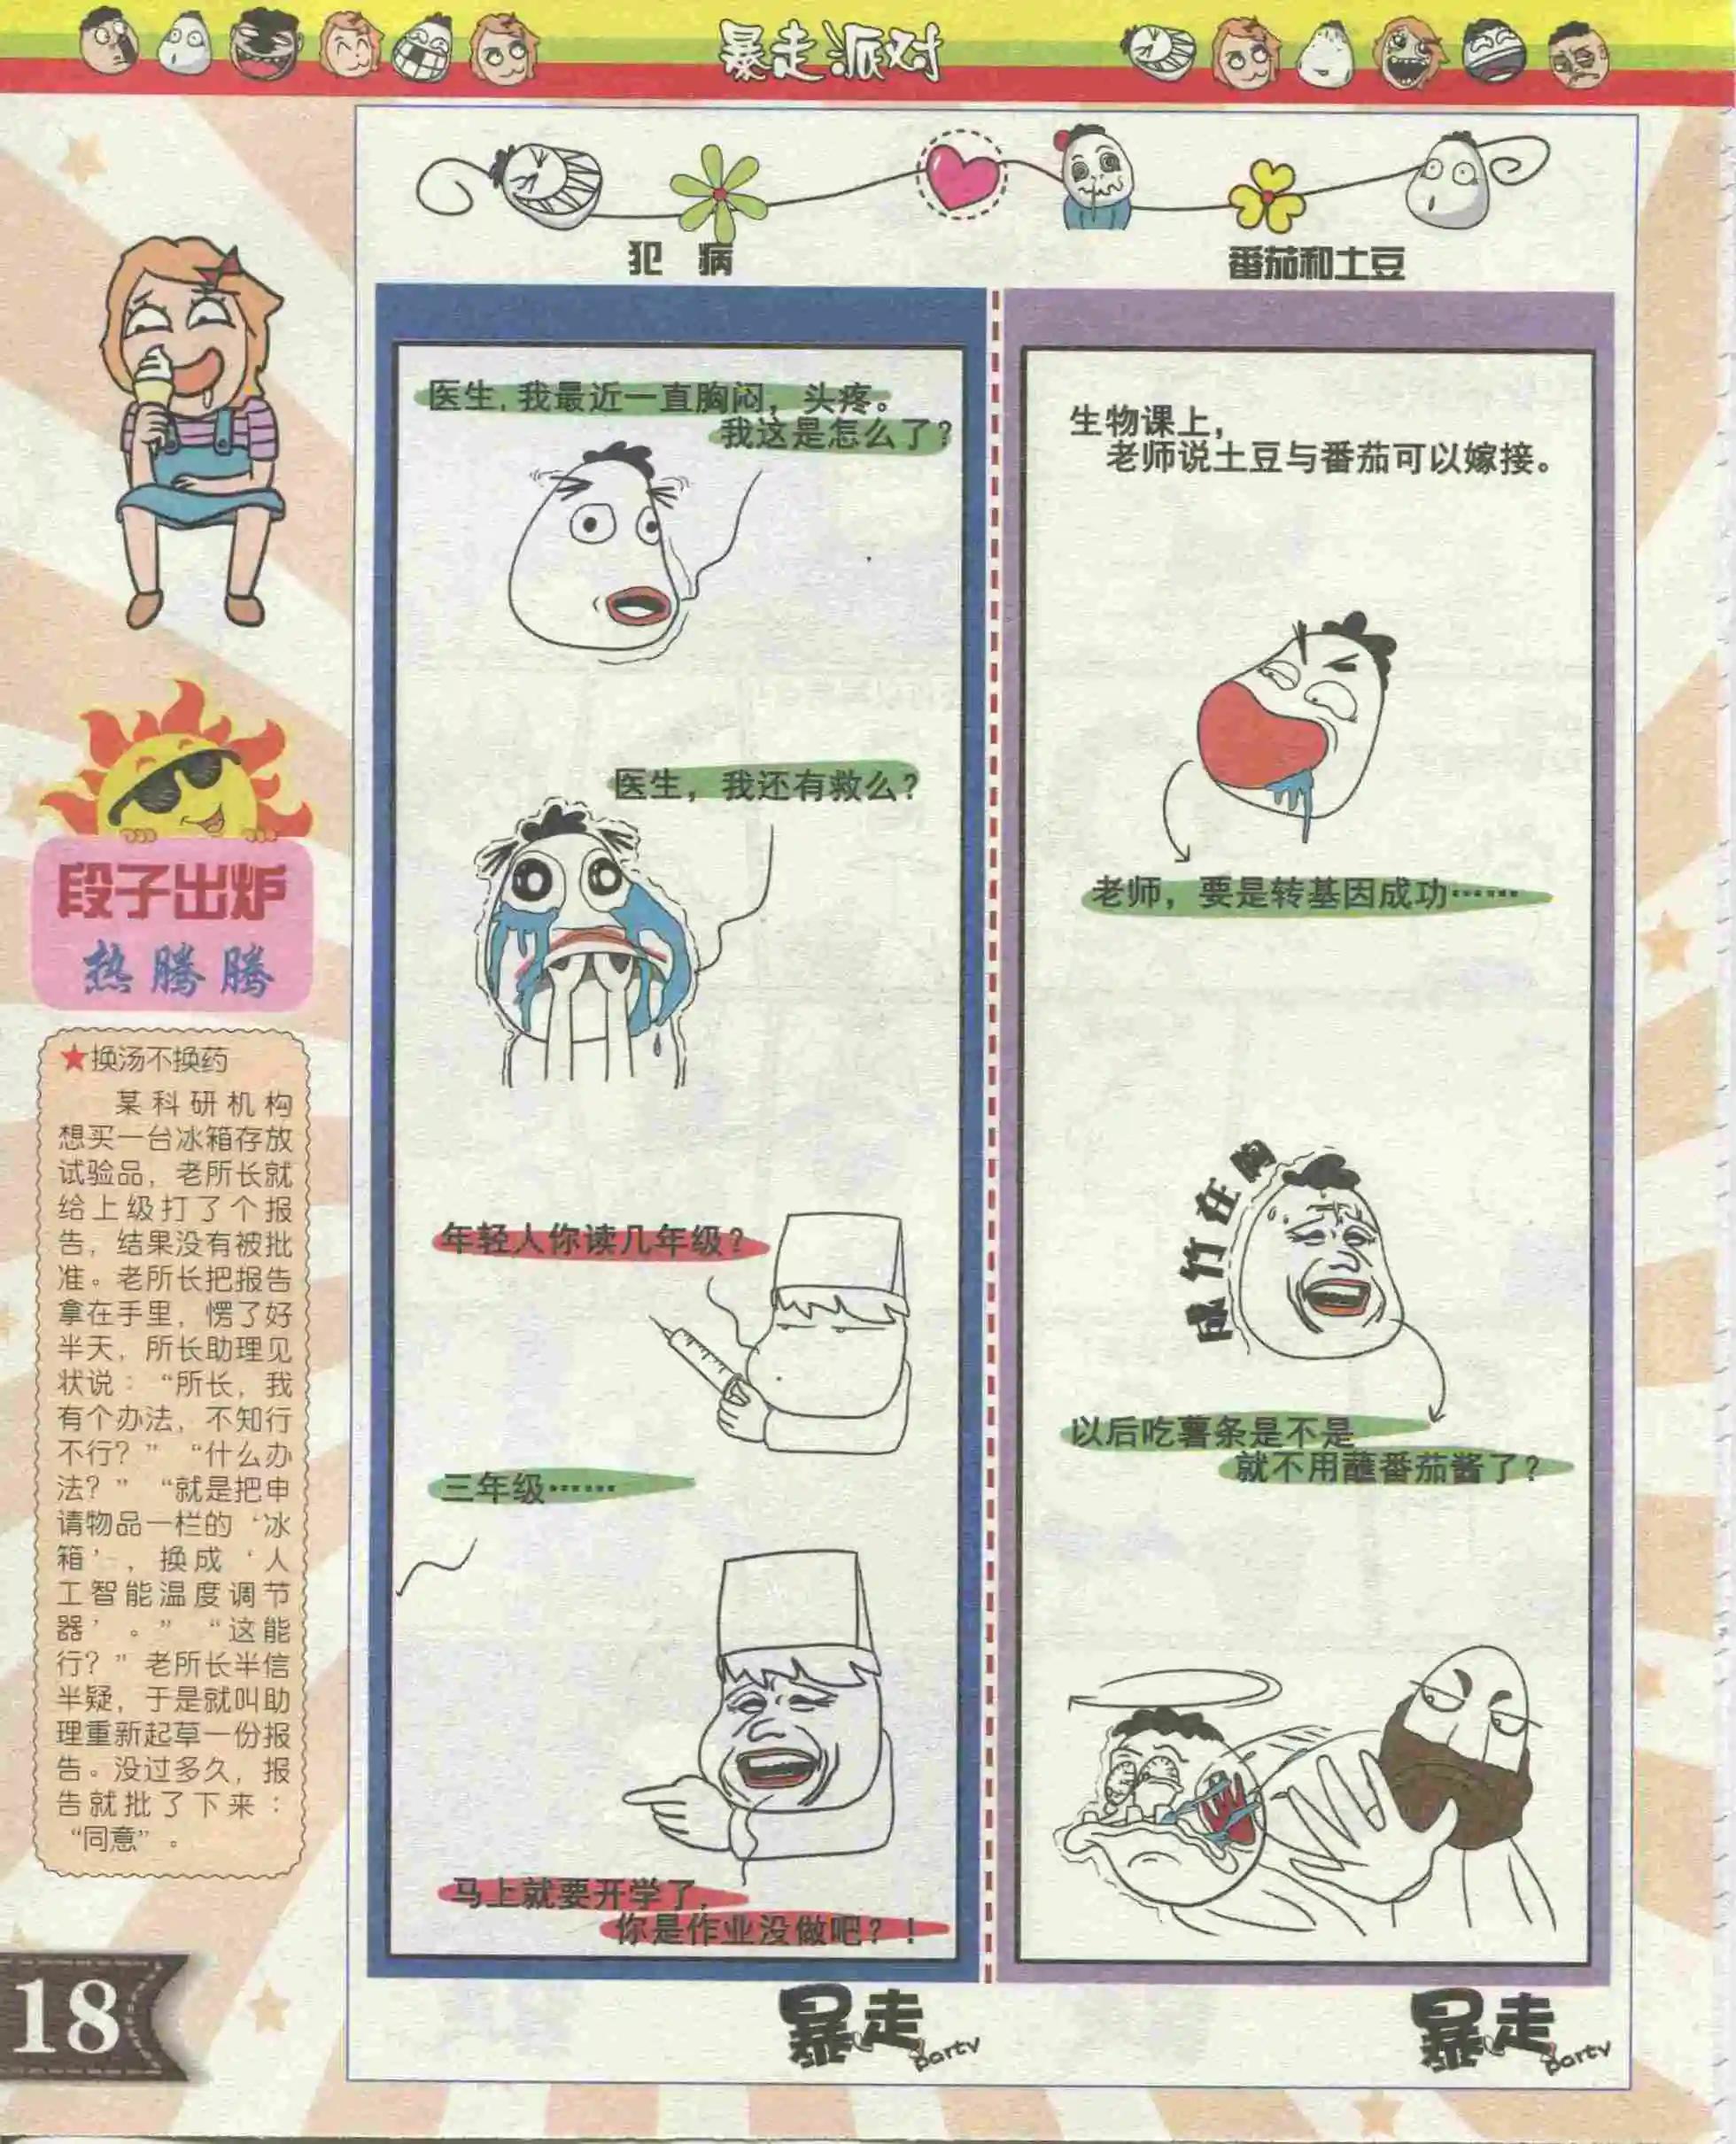 暴走派对
犯 病
番茄和土豆
医生,我最近一直胸闷,头疼。
我这是怎么了?
医生,我还有救么?
年轻人你读几年级?
三年级……
马上就要开学了,
你是作业没做吧?!
暴走
party
生物课上,
老师说土豆与番茄可以嫁接。
老师,要是转基因成功……
成竹在胸
以后吃薯条是不是
就不用蘸番茄酱了?
暴走
party
段子出炉
热腾腾
★换汤不换药
某科研机构
想买一台冰箱存放
试验品,老所长就
给上级打了个报
告,结果没有被批
准。老所长把报告
拿在手里,愣了好
半天,所长助理见
状说:“所长,我
有个办法,不知行
不行?”“什么办
法?”“就是把申
请物品一栏的‘冰
箱’,换成‘人
工智能温度调节
器’。”“这能
行?”老所长半信
半疑,于是就叫助
理重新起草一份报
告。没过多久,报
告就批了下来:
“同意”。
18